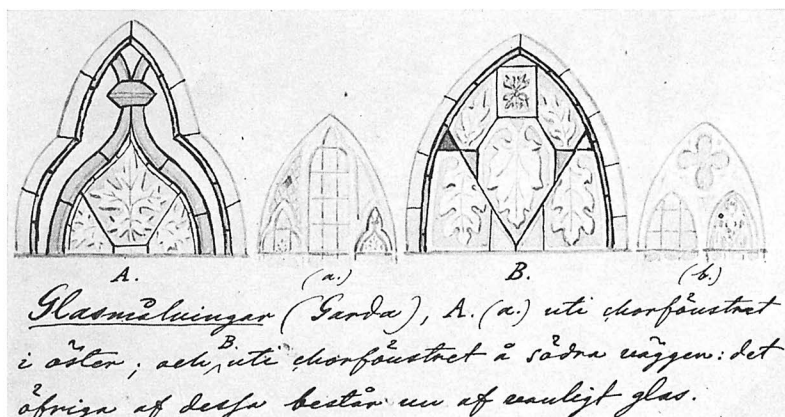 A. (a.) B. (b.)
Glasmålningar (Garda), A. (a.) uti chorfönstret
i öster; och B. uti chorfönstret å södra väggen: det
öfriga af dessa består nu af vanligt glas.